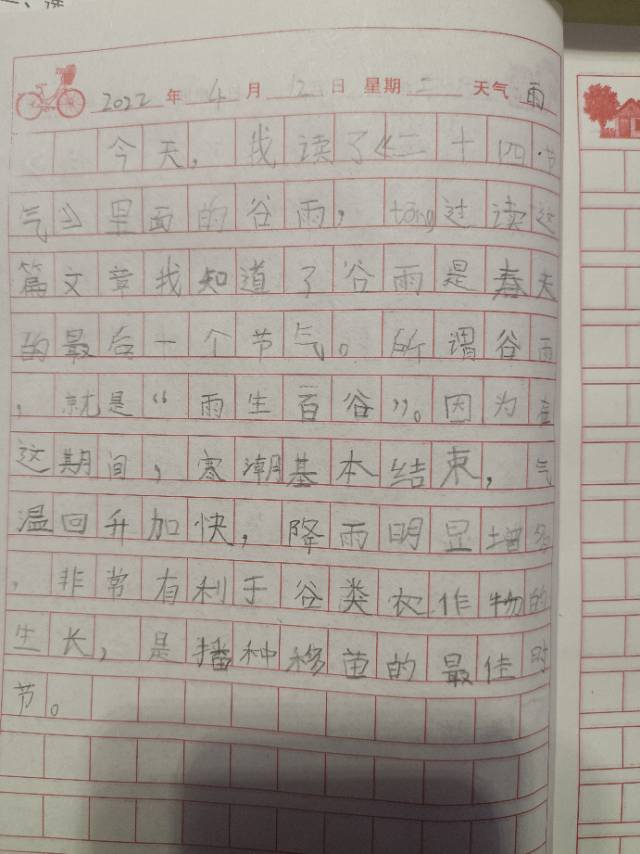 2022年4月12日 星期二 天气雨
今天,我读了《二十四节
气》里面的谷雨,tōng过读这
篇文章我知道了谷雨是春天
的最后一个节气。所谓谷雨
,就是“雨生百谷”。因为在
这期间,寒潮基本结束,气
温回升加快,降雨明显增多
,非常有利于谷类农作物的
生长,是播种移苗的最佳时
节。